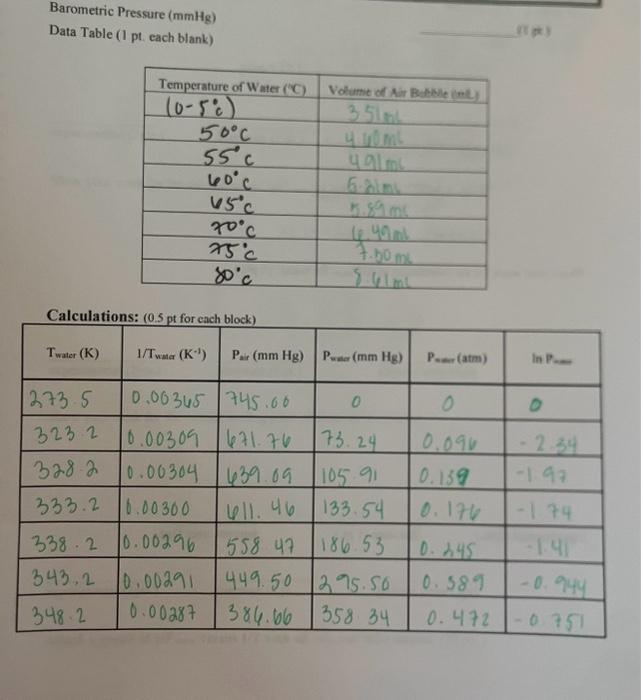 Barometric Pressure (mmHg)
Data Table (1 pt. each blank)
Temperature of Water (°C) Volume of Air Bubble (mL)
(0-5°c) 3.51mL
50°C 4.40mL
55°C 4.91mL
60°C 5.21mL
65°C 5.89mL
70°C 6.49mL
75°C 7.50mL
80°C 8.61mL
Calculations: (0.5 pt for each block)
Twater (K) 1/Twater (K⁻¹) Pair (mm Hg) Pwater (mm Hg) Pwater (atm) ln Pwater
273.5 0.00365 745.00 0 0 0
323.2 0.00309 671.76 73.24 0.096 -2.34
328.2 0.00304 639.09 105.91 0.139 -1.97
333.2 0.00300 611.46 133.54 0.176 -1.74
338.2 0.00296 558.47 186.53 0.245 -1.41
343.2 0.00291 449.50 295.50 0.389 -0.944
348.2 0.00287 386.66 358.34 0.472 -0.751